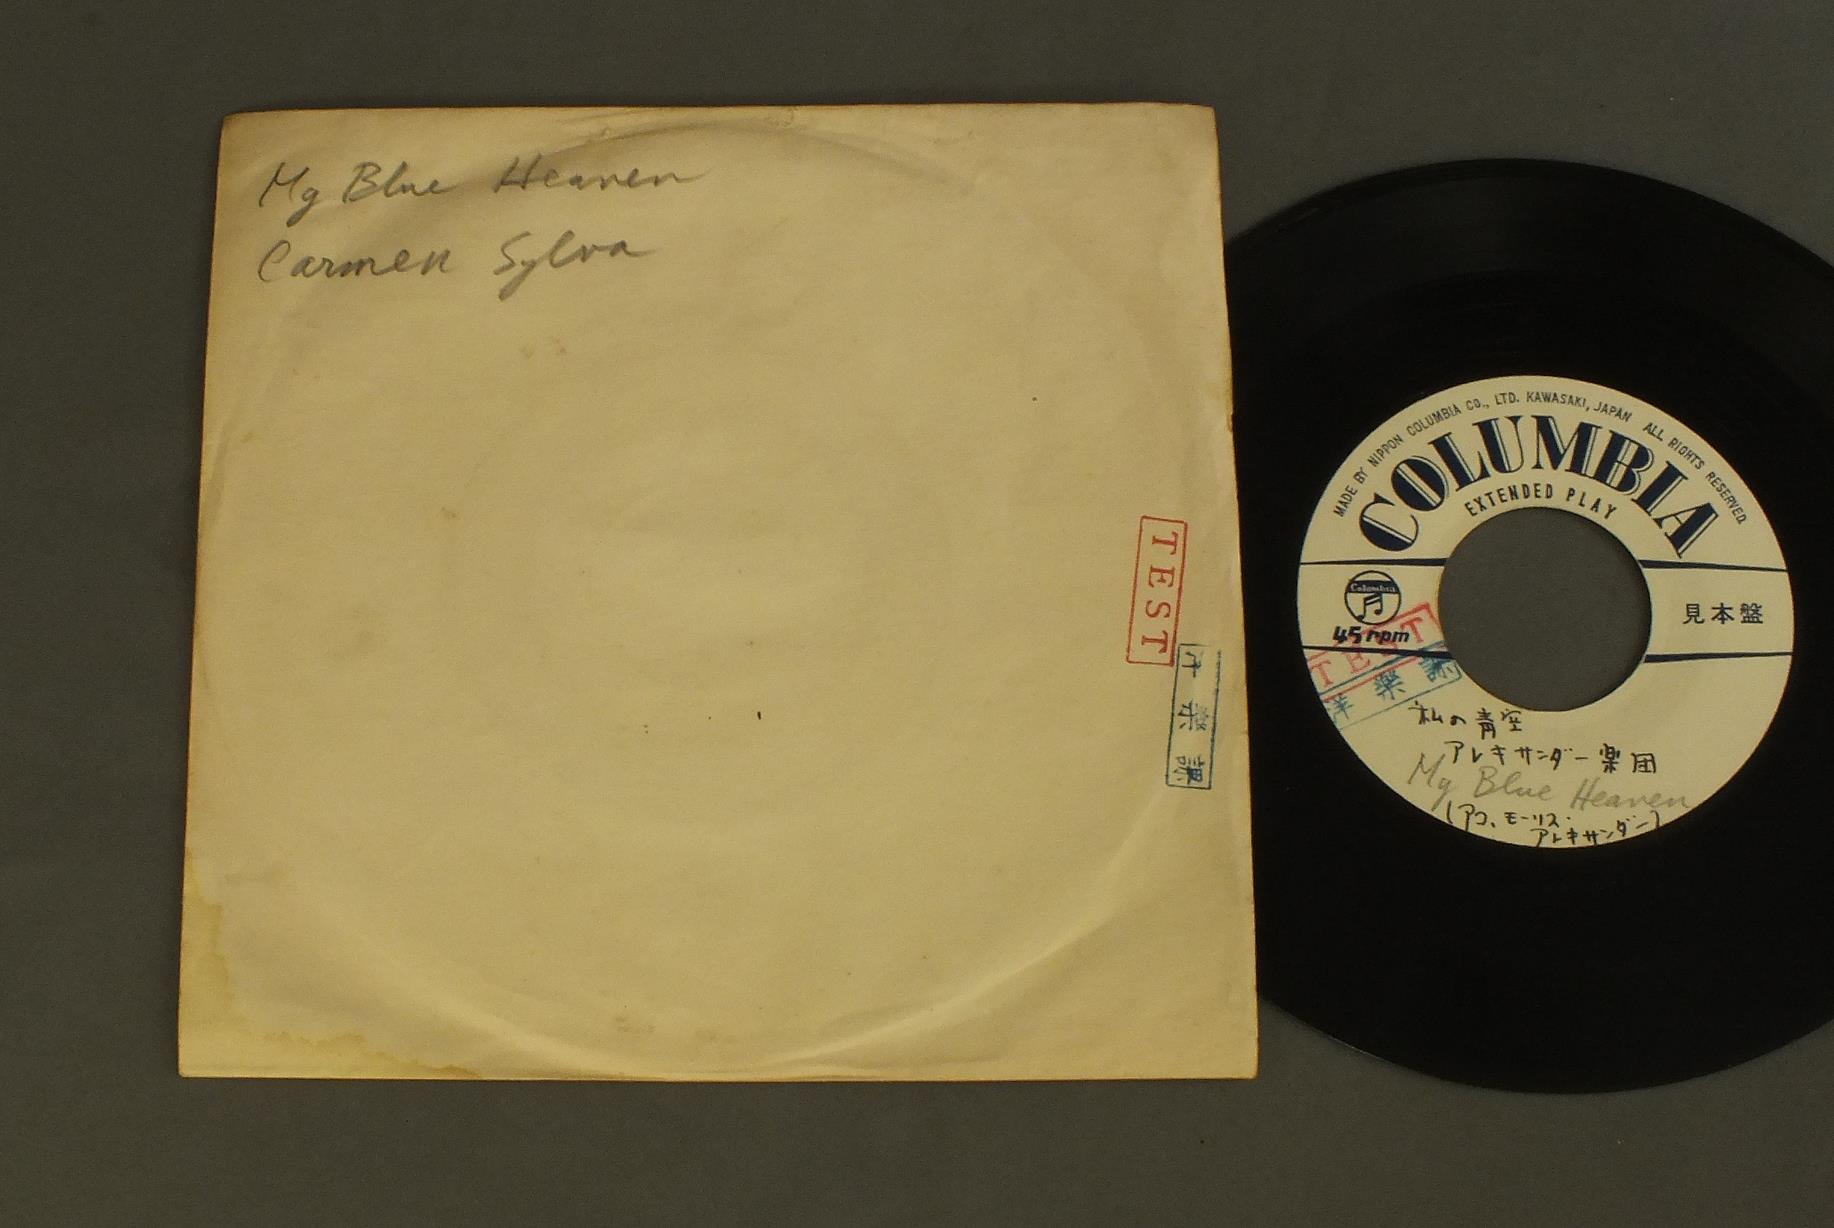 My Blue Heaven
Carmen Sylva
TEST
洋楽課
MADE BY NIPPON COLUMBIA CO., LTD. KAWASAKI, JAPAN ALL RIGHTS RESERVED.
COLUMBIA
EXTENDED PLAY
Columbia
45 rpm
見本盤
TEST
洋楽課
私の青空
アレキサンダー楽団
My Blue Heaven
(アコ、モーリス・
アレキサンダー)